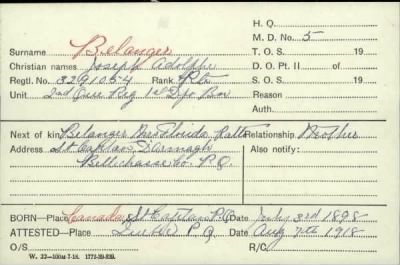 H. Q.
Surname Belanger M. D. No. 5
Christian names Joseph Adolphe T. O. S. 19
Regtl. No. 3291054 Rank Pte D. O. Pt. II of
Unit 2nd Que Reg 1st Dpo Bn S. O. S. 19
Reason
Auth.
Next of kin Belanger Mrs Relationship Mother
Address St Cajetan D'Armagh Also notify:
Bellechasse Co. P.Q.
BORN—Place Canada, St Cajetan P.Q. Date July 3rd 1898
ATTESTED—Place Quebec P.Q. Date Aug 7th 1918
O/S R/C
W. 22—100M-7-18. 1772-39-839.